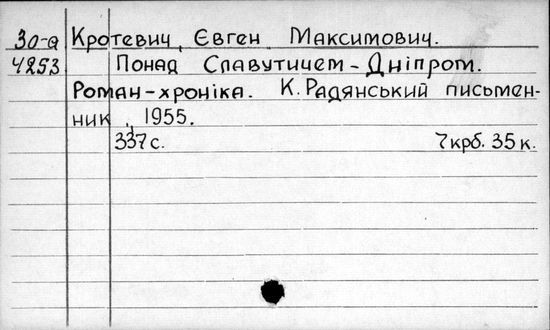 30-а Кротевич, Євген Максимович.
4253 Понад Славутичем-Дніпром.
Роман-хроніка. К. Радянський письмен-
ник, 1955.
337 с. 7 крб. 35 к.